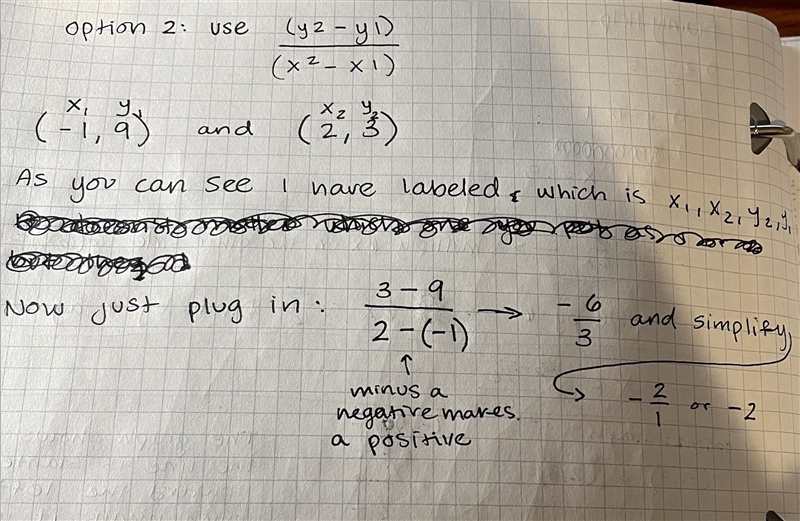 option 2: use (y2 - y1)
(x2 - x1)
x1 y1 x2 y2
(-1, 9) and (2, 3)
As you can see I have labeled which is x1, x2, y2, y1
Now just plug in: 3 - 9 → - 6 and simplify
2 - (-1) 3
↑
minus a
negative makes
a positive
- 2 or -2
1